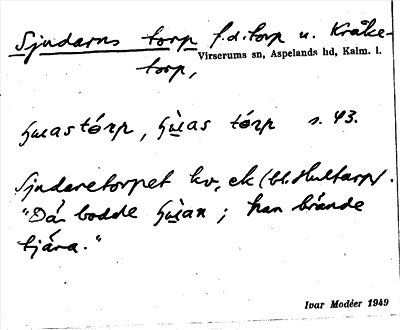 Sjudarns torp f.d. torp u. Kråke-
Virserums sn, Aspelands hd, Kalm. l.
torp,
s. 43.
Sjudaretorpet kv, ek (bl. Hultarp).
"Då bodde han brände
tjära."
Ivar Modéer 1949